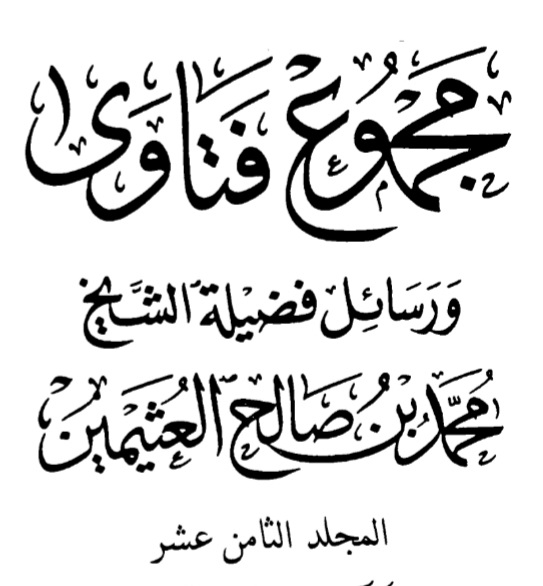 مجموع فتاوى
ورسائل فضيلة الشيخ
محمد بن صالح العثيمين
المجلد الثامن عشر